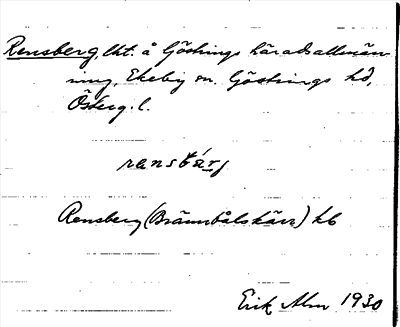 Rensberg, lht. å Göstrings häradsallmän-
ning, Ekeby sn. Göstrings hd,
Österg. l.
rensbárj
Rensberg (Brännbålskärr) hb
Erik Alm 1930